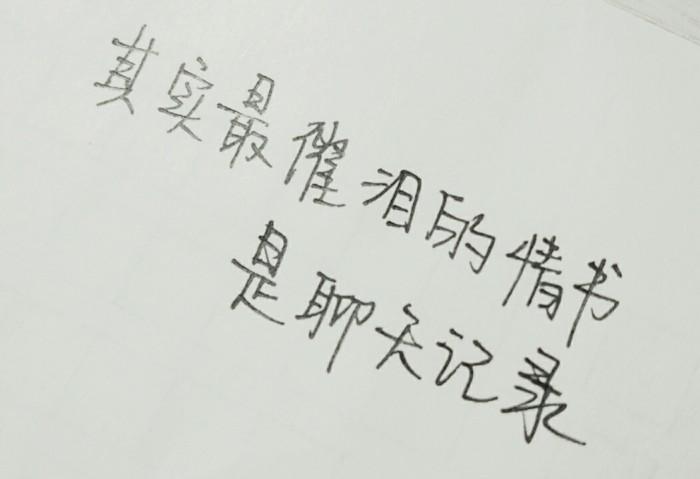 其实最催泪的情书
是聊天记录